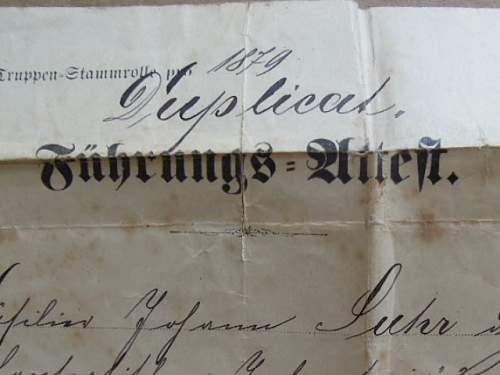 Truppen-Stammrolle pro 1879
Duplicat.
Führungs-Attest.
Johann Suhr